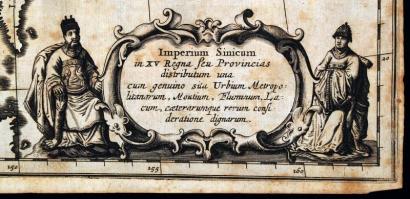 Imperium Sinicum
in XV Regna seu Provincias
distributum una
cum genuino situ Urbium Metropo-
litanarum, Montium, Fluminum, La-
cum, cæterarumque rerum consi
deratione dignarum.
20
150
155
160